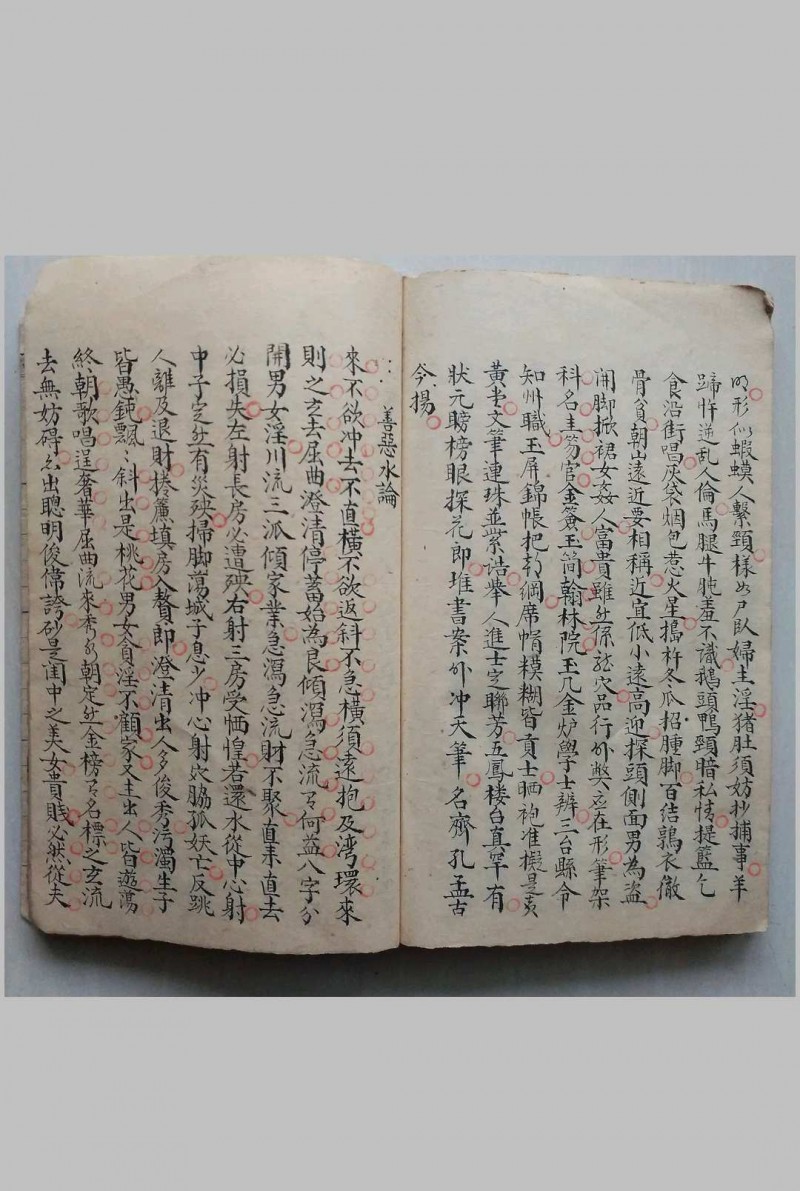 形似蝦蟆人繫頸樣如尸臥婦主淫猪肚須妨抄捕事羊
蹄忤逆乱人倫馬腿牛肫羞不識鵝頭鴨頸暗私情提籃乞
食沿街唱灰袋烟包惹火星搗杵冬瓜招腫脚百結鶉衣徹
骨貧朝山遠近要相稱近宜低小遠高迎探頭側面男為盜
開脚掀裙女姦人富貴雖然係龍穴品行外獘立在形筆架
科名圭笏官金簽玉简翰林院玉几金炉學士辨三台縣令
知州職玉屏錦帳把綱席帽糢糊皆貢士晒袍准擬是
黃甲文筆連珠並紫誥舉人進士定聯芳五鳳楼台真罕有
狀元聮榜眼探花郎堆書案外冲天筆名齊孔孟古
今揚
善惡水論
來不欲冲去不直橫不欲返斜不急橫須遠抱及湾環來
則之玄去屈曲澄清停蓄始為良傾瀉急流有何益八字分
開男女淫川流三派傾家業急瀉急流財不聚直來直去
必損失左射長房必遭殃右射三房受恓惶若還水從中心射
中子定然有災殃掃脚蕩城子息少冲心射穴脇孤妖亡反跳
人離及退財捲簾填房入贅郎澄清出人多俊秀污濁生子
皆愚鈍飄飄斜出是桃花男女貪淫不顧家又主出人皆遊蕩
終朝歌唱逞奢華屈曲流來秀水朝定然金榜有名標之玄流
去無妨碍名出聰明俊偉誇砂是闺中之美女貴賤必然從夫